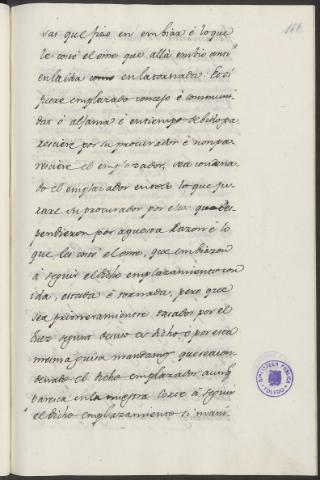 161
sas que fizo en embiar è lo que
le costó el ome que allà embio ansi
en la ida como en la tornada: E si
fuere emplazado concejo è communi
dat ò aljama è en tiempo debido pa
resciere por su procurador è non pa
resciere el emplazador, sea condena
do el emplazador en todo lo que ju
rare su procurador por essa que des
pendieron por aquesta razon è lo
que les costó el ome, que embiaron
à seguir el dicho emplazamiento con
ida, estada è tornada, pero que
sea primeramiente tasador por el
Juez segunt de suso es dicho è por esta
mesma guisa mandamos que sea con
denado el dicho emplazador aunq.
paresca en la nuestra Corte à seguir
el dicho emplazamiento si mani
BIBLIOTECA PUBLICA
TOLEDO